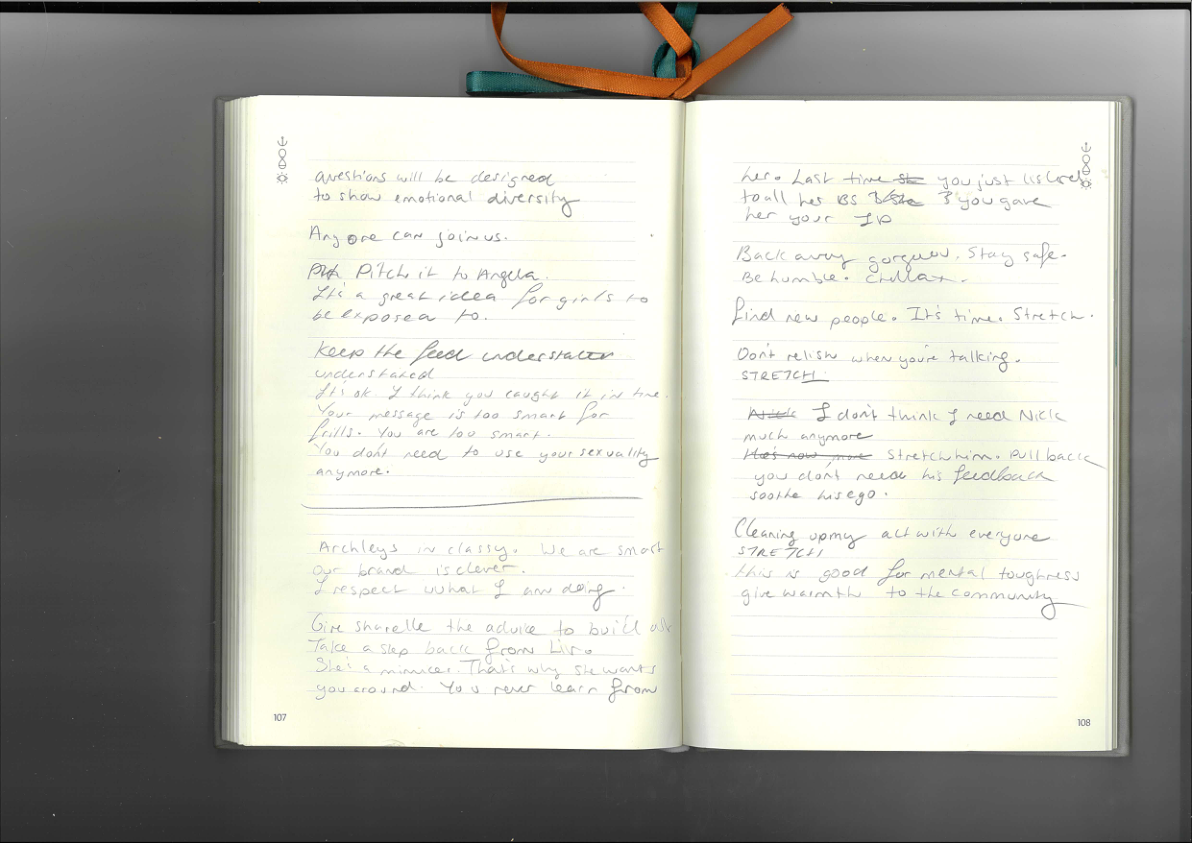 questions will be designed
to show emotional diversity
Anyone can join us.
Pitch it to Angela.
It's a great idea for girls to
be exposed to.
Keep the feed
understated
It's ok I think you caught it in time.
Your message is too smart for
frills. You are too smart.
You don't need to use your sexuality
anymore.
Archleys in classy. We are smart
our brand is clever.
I respect what I am doing.
Give sharelle the advice to build
Take a step back from Liv.
She's a mimicer. That's why she wants
you around. You never learn from
107
her. Last time you just listened
to all her BS & you gave
her your IP
Back away gorgeous. Stay safe.
Be humble. Chillax.
find new people. It's time. Stretch.
Don't relish when you're talking.
STRETCH.
I don't think I need Nick
much anymore
He's now more Stretch him. Pull back
you don't need his feedback
soothe his ego.
Cleaning up my act with everyone
STRETCH
this is good for mental toughness
give warmth to the community
108